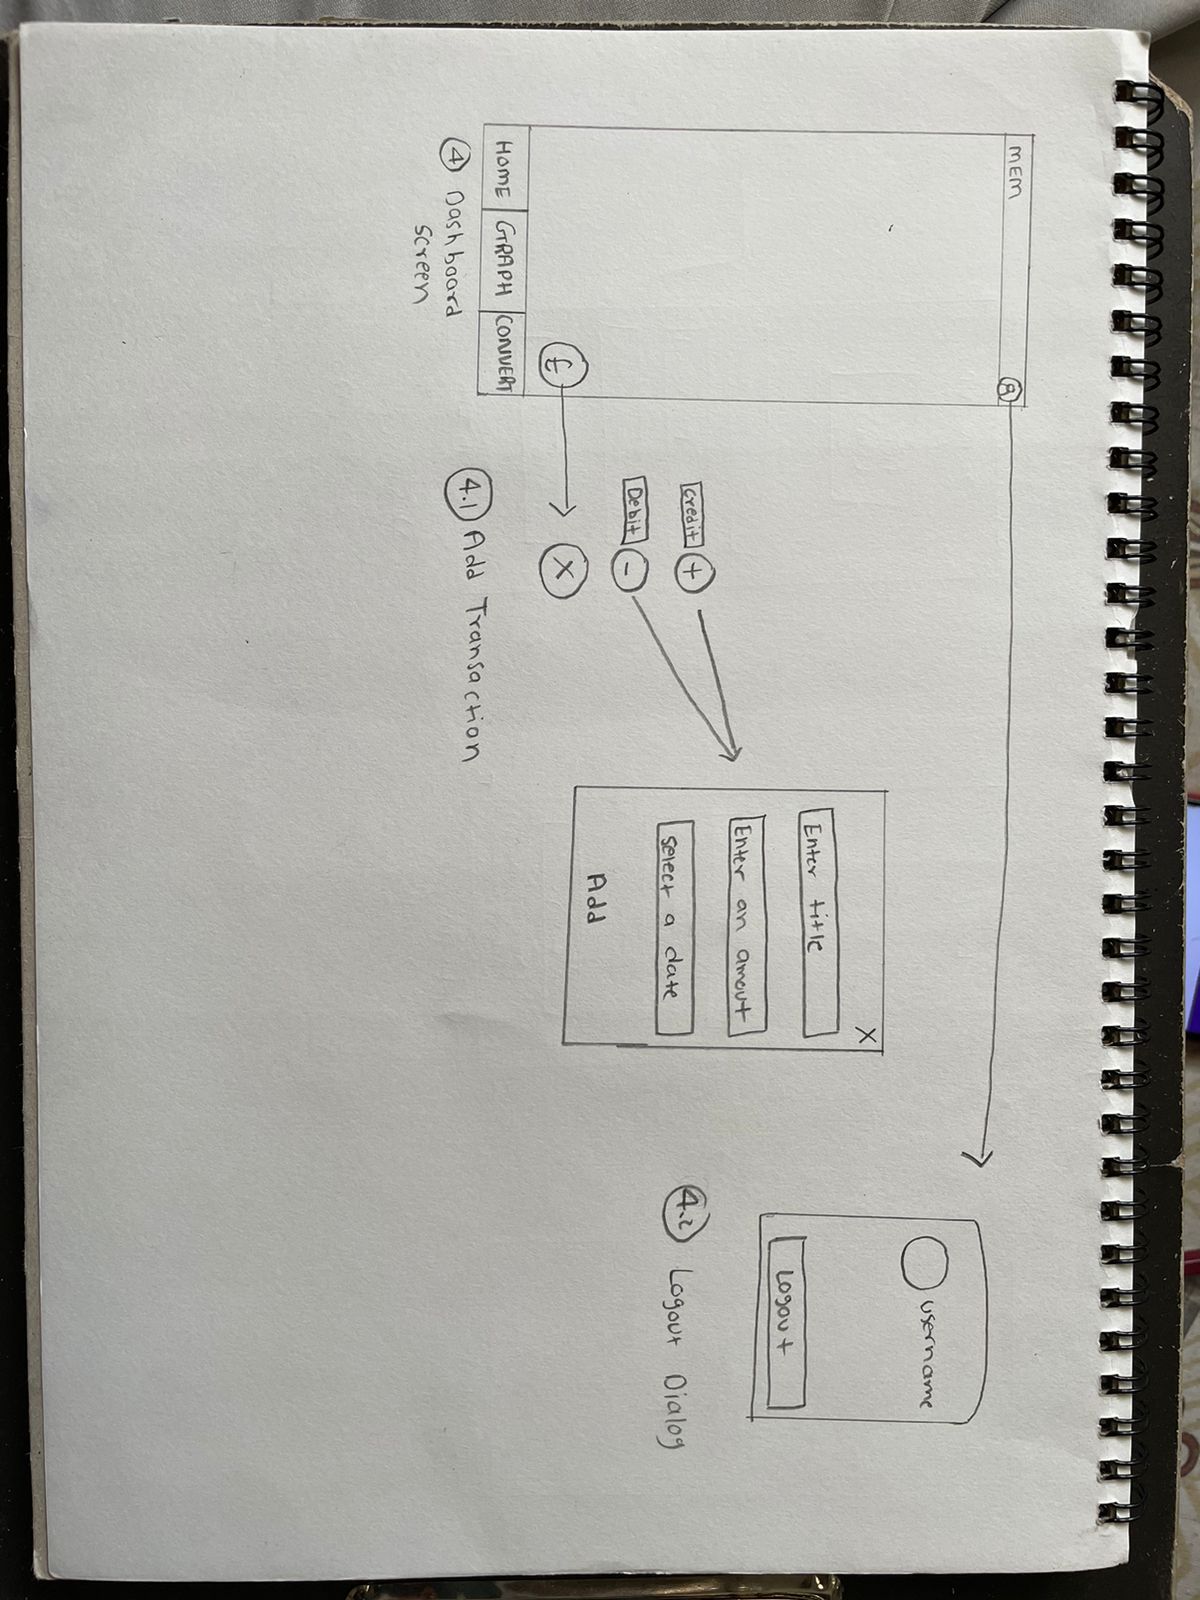 MEM
£
HOME
GRAPH
CONVERT
4 Dashboard
screen
Credit +
Debit -
X
4.1 Add Transaction
X
Enter title
Enter an amout
select a date
Add
username
Logout
4.2 Logout Dialog